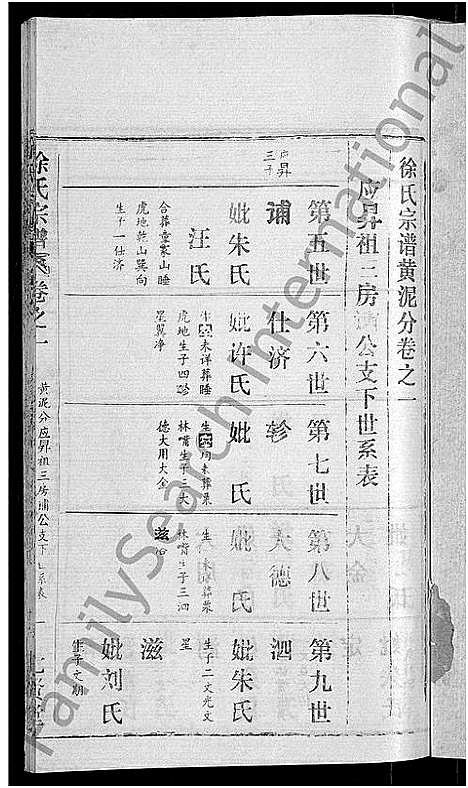 徐氏宗谱黄泥分卷之一
应昇祖三房浦公支下世系表
第五世
应昇
三子
浦
妣朱氏
汪氏
合葬童家山睡
虎地乾山巽向
生子一仕济
第六世
仕济
妣许氏
生 未详葬睡
虎地生子四轸
星翼净
第七世
轸
妣 氏
生 未葬栗
林嘴生子三大
德大用大金
第八世
大德
妣 氏
生 未葬栗
林嘴生子三泗
滋治
第九世
泗
妣朱氏
生子二文光文
星
滋
妣刘氏
生子文朝
徐氏宗谱
卷之一
黄泥分应昇祖三房浦公支下世系表
FamilySearch International